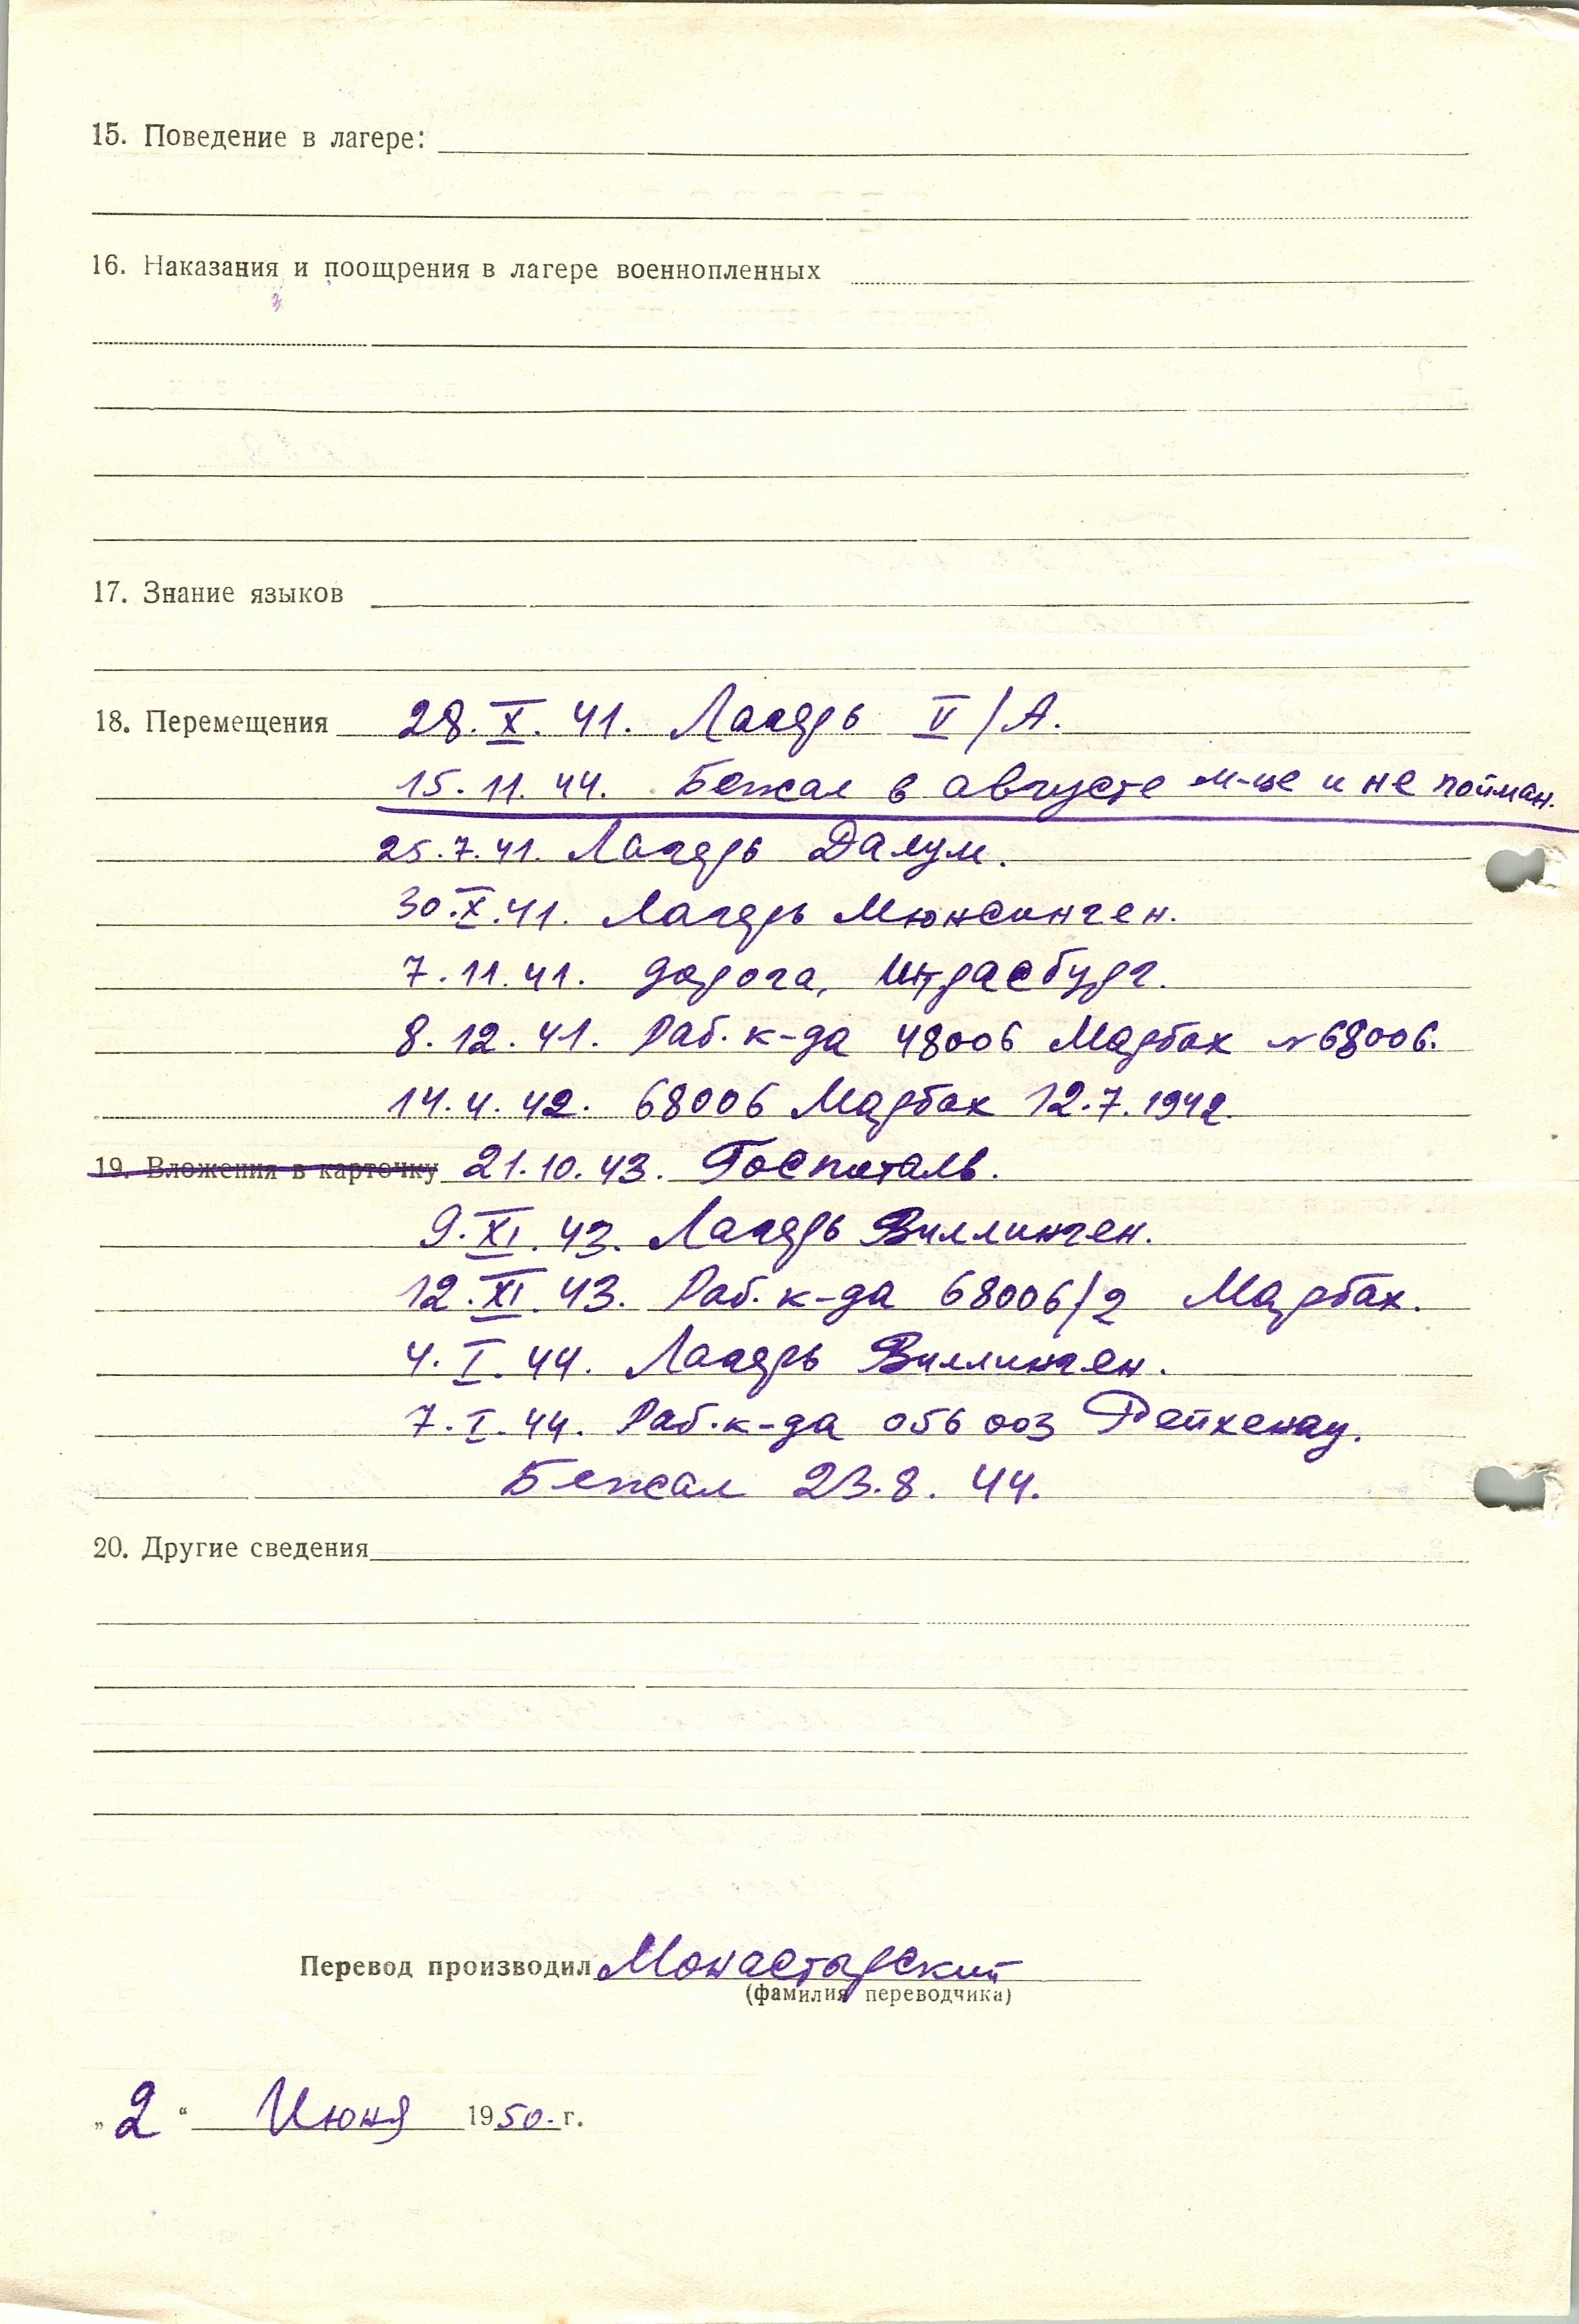 15. Поведение в лагере:
16. Наказания и поощрения в лагере военнопленных
17. Знание языков
18. Перемещения 28.X.41. Лагерь V/А.
15.11.44. Бежал в августе м-це и не пойман.
25.7.41. Лагерь Далум.
30.X.41. Лагерь Мюнсинген.
7.11.41. дорога, Штрасбург.
8.12.41. Раб. к-да 48006 Марбах №68006.
14.4.42. 68006 Марбах 12.7.1942.
19. Вложения в карточку 21.10.43. Госпиталь.
9.XI.43. Лагерь Виллинген.
12.XI.43. Раб. к-да 68006/2 Марбах.
4.I.44. Лагерь Виллинген.
7.I.44. Раб. к-да 056003 Рейхенау.
Бежал 23.8.44.
20. Другие сведения
Перевод производил Монастырский
(фамилия переводчика)
„2“ Июня 1950. г.